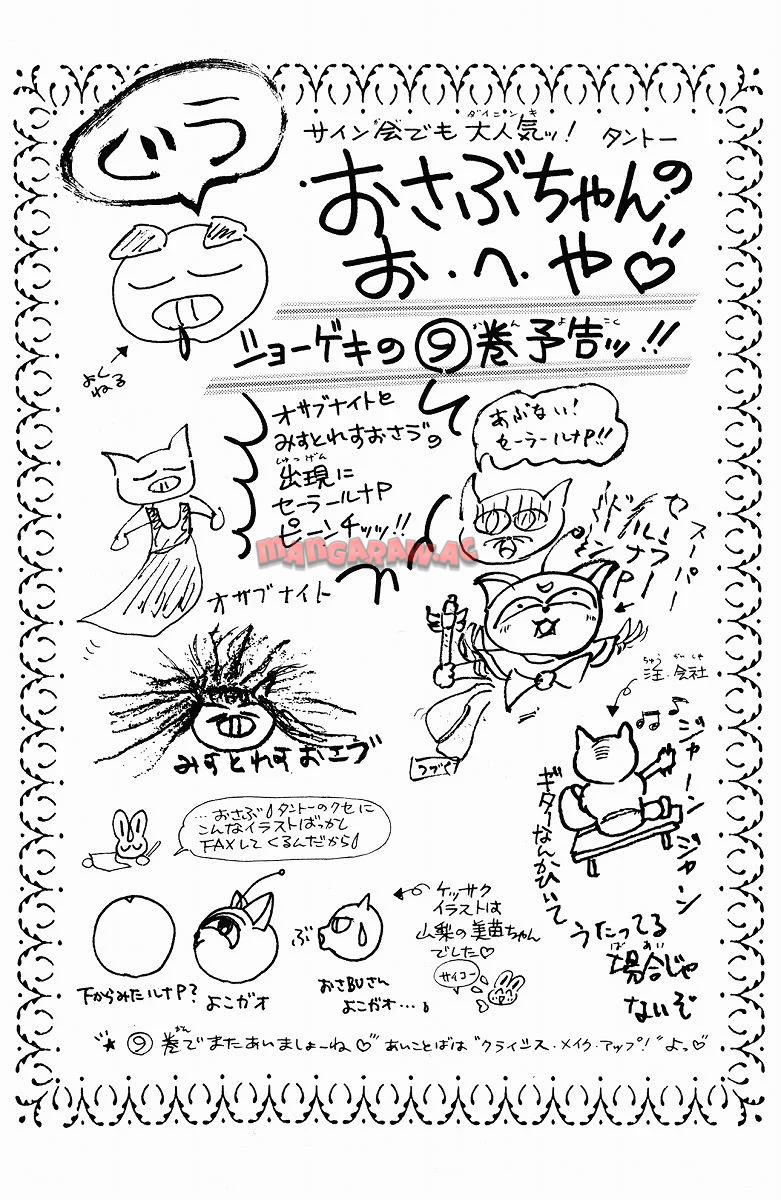 ぐぅ
サイン会でも大人気ッ! タントー
ダイニンキ
おさぶちゃんの
お・へ・や♡
ショーゲキの⑨巻予告ッ!!
かん よ こく
よく
ねる
オサブナイトと
みすとれすおさブの
しゅつげん
出現に
セーラールナP
ピーンチッッ!!
あぶない!
セーラールナP!!
スーパー
セーラー
ルナP
オサブナイト
みすとれすおさブ
つづく
ちゅう がいしゃ
注・会社
♪♫♪
ジャーン
ジャーン
ギターなんかひいて
うたってる
ばあい
場合じゃ
ないぞ
…おさぶ タントーのクセに
こんなイラストばっかし
FAXしてくるんだから
下からみたルナP?
よこガオ
ぶ
おさBUさん
よこガオ…
ケッサク
イラストは
山梨の美苗ちゃん
でした♡
サイコー
★⑨巻でまたあいましょーね♡ あいことばは"クライシス・メイク・アップ!"よっ♡
かん